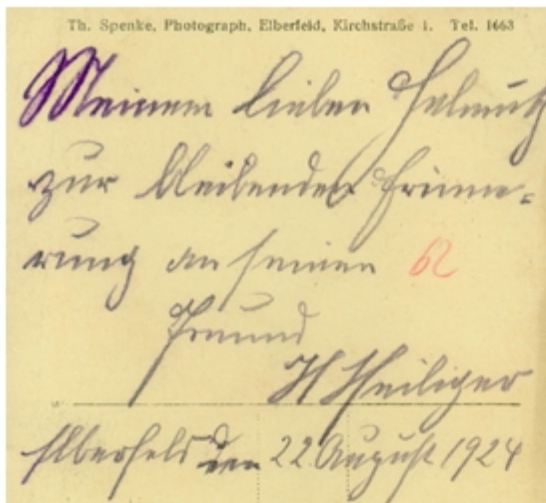 Th. Spenke, Photograph, Elberfeld, Kirchstraße 1. Tel. 1663
Meinem lieben Helmuth
zur bleibenden Erinne-
rung an seinen 62
Freund
H Heiliger
Elberfeld den 22. August 1924